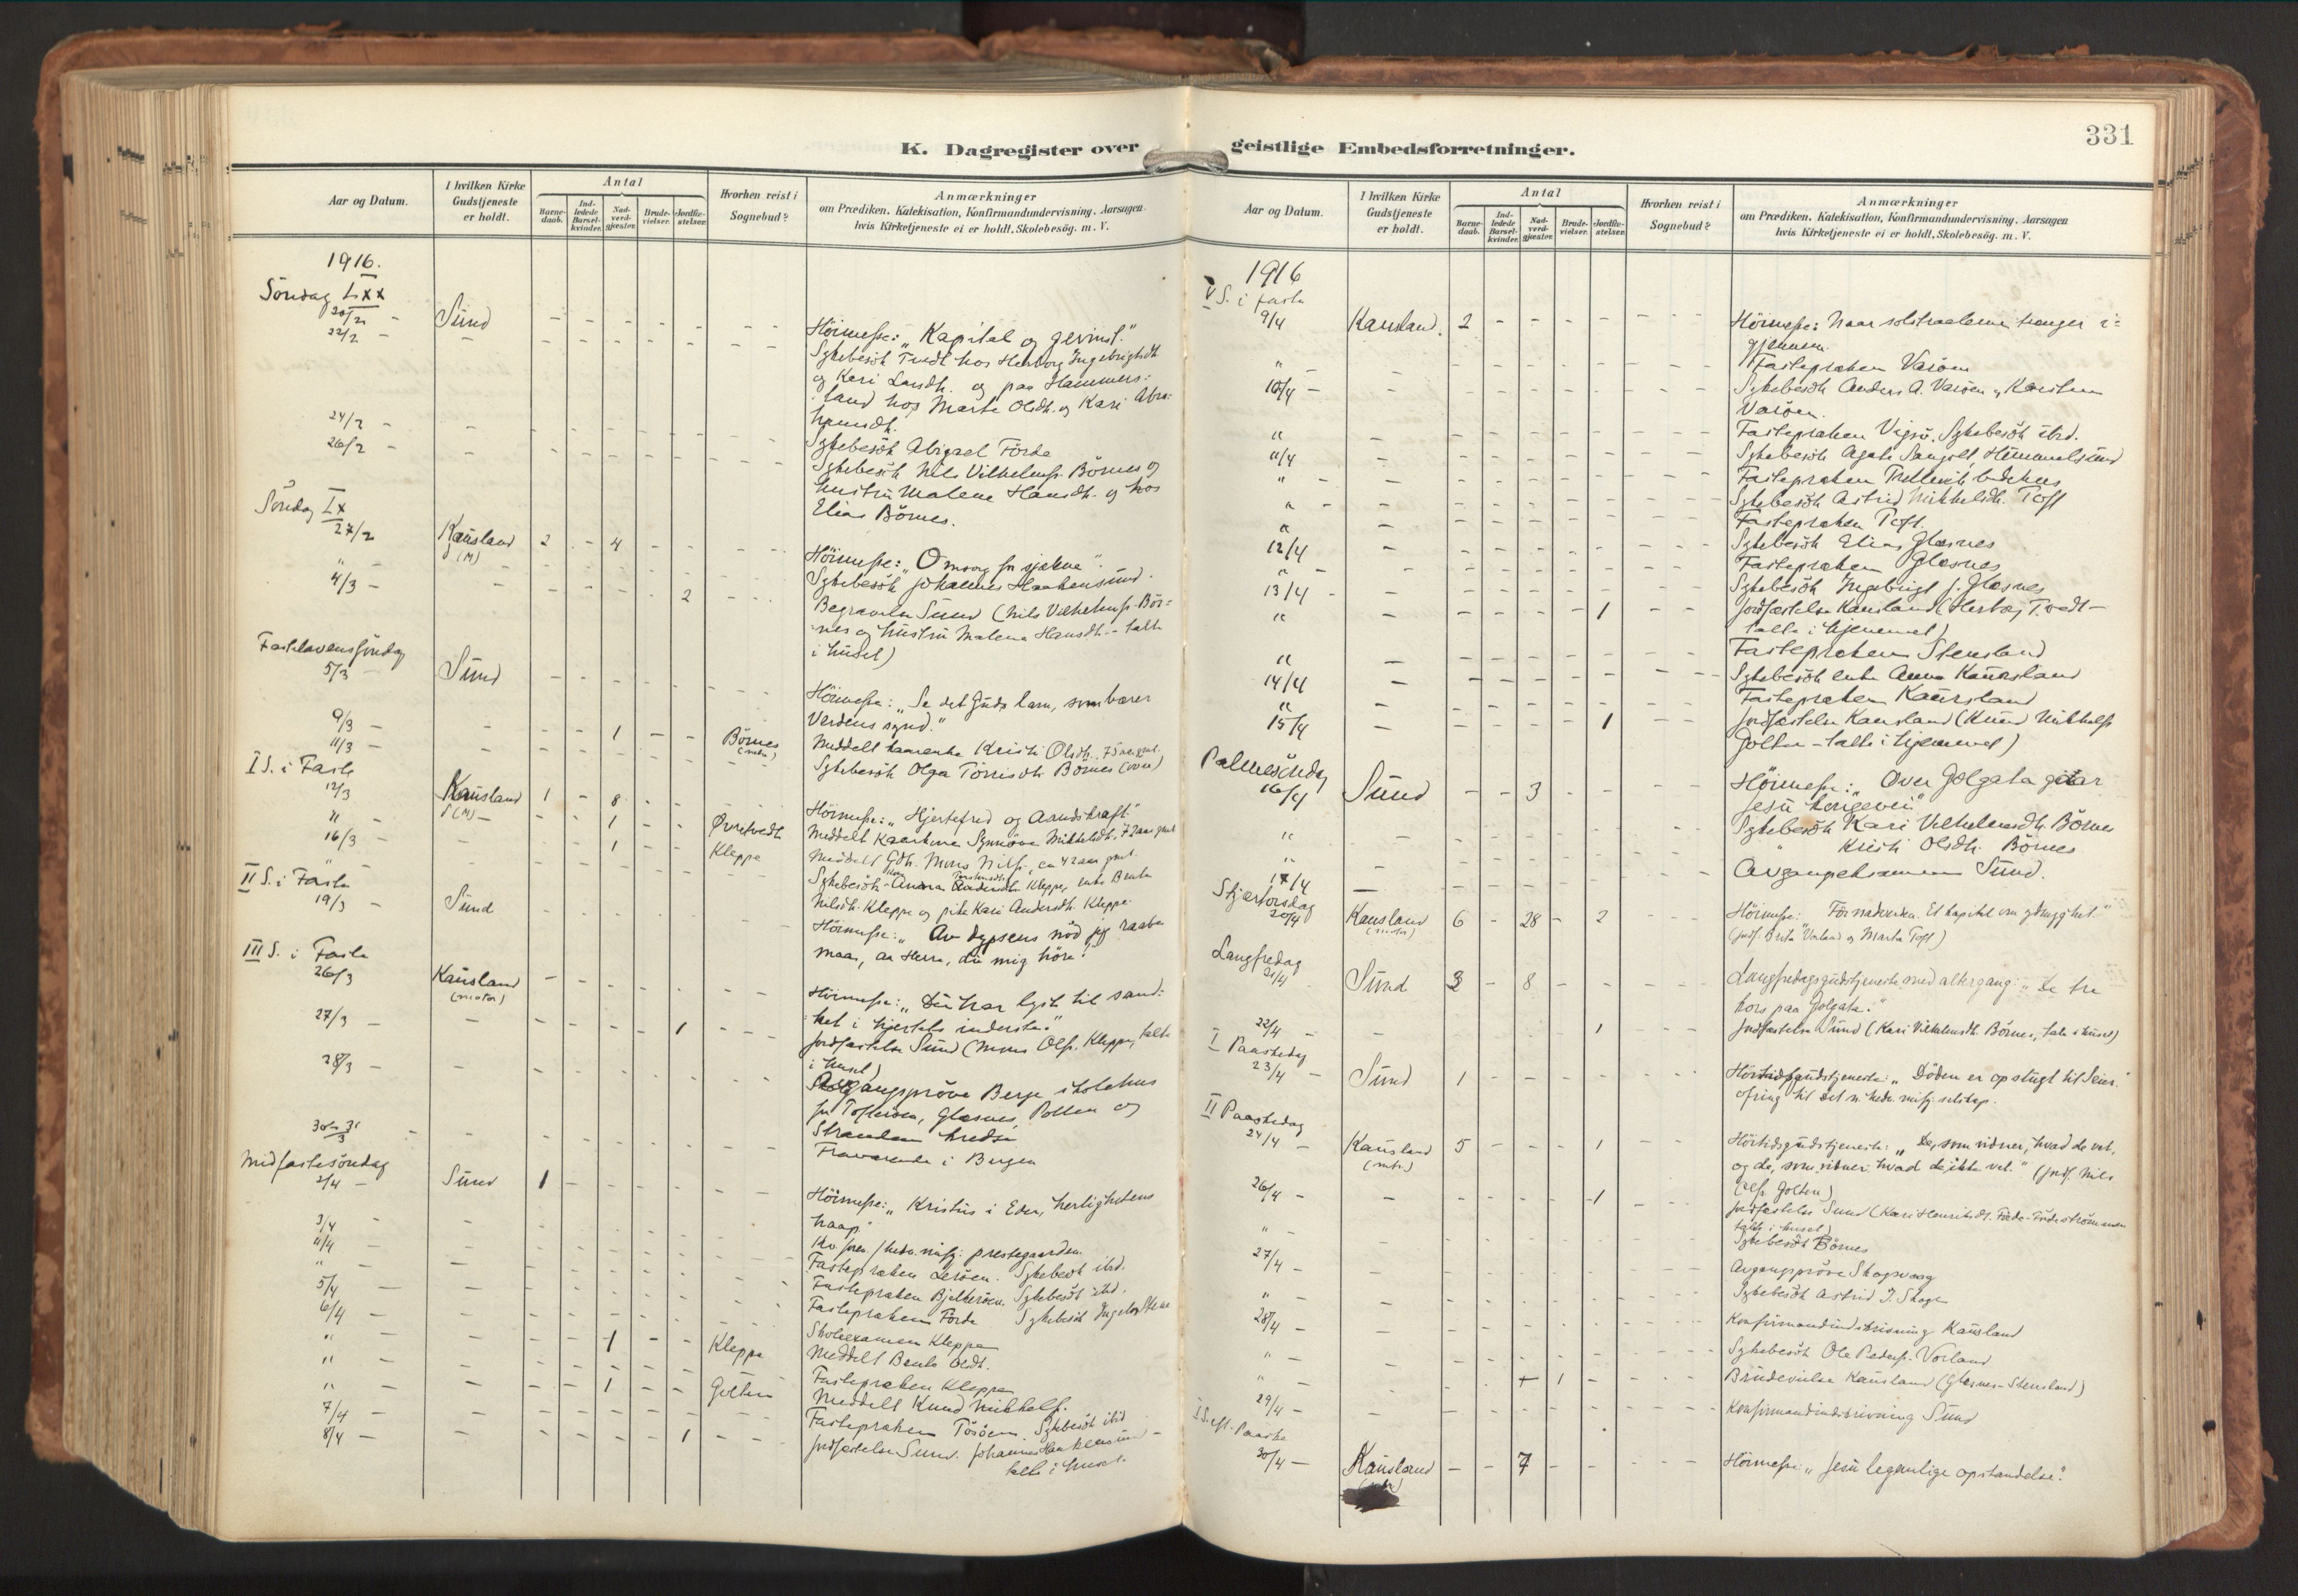 K. Dagregister over
Aar og Datum.
I hvilken Kirke Gudstjeneste er holdt.
Antal
Barne-daab.
Ind-ledede Barsel-kvinder.
Nad-verd-gjester.
Brude-vielser.
Jordfæ-stelser.
Hvorhen reist i Sognebud?
Anmærkninger
om Prædiken, Katekisation, Konfirmandundervisning, Aarsagen
hvis Kirketjeneste ei er holdt, Skolebesög. m. V.
1916.
Söndag Lxx
20/2 - Sund - - - - - - Höimesse: "Kapital og gevinst."
22/2 - Sykebesök Tvedt hos Herborg Ingebrigtsdt.
og Kari Larsdt. og paa Hammers-
land hos Marte Olsdt. og Kari Abra-
hamsdt.
24/2 - Sykebesök Abigael Förde
26/2 - Sykebesök Nils Vilhelmss. Börnes og
hustru Malene Hansdt. og hos
Elias Börnes.
Söndag Lx
27/2 Kausland (M) 2 - 4 - - - Höimesse: "Omsorg for sjælene".
" Sykebesök Johannes Haakensund.
4/3 - - - - - 2 - Begravelse Sund (Nils Vilhelmss. Bör-
nes og hustru Malene Hansdt. - talte
i huset)
Fastelavenssöndag
5/3 - Sund - - - - - - Höimesse: "Se det Guds lam, som bærer
Verdens synd."
9/3 - - - 1 - - Börnes Meddelt Kristi Olsdt. 75 aar gml.
11/3 - Sykebesök Olga Törrisdt. Börnes
I S. i Faste
12/3 Kausland (M) 1 - 8 - - - Höimesse: "Hjertefred og Aandskraft"
" - - - 1 - - Øvretvedt Meddelt Synnöve Mikkelsdt. 72 aar gml.
16/3 - - - 1 - - Kleppe Meddelt Mons Nilss.
Sykebesök Anna Kleppe, enke Brita
Nilsdt. Kleppe og pike Kari Andersdt. Kleppe
II S. i Faste
19/3 - Sund - - - - - - Höimesse: "Av dypsens nöd jeg raabe
maa, aa Herre, du mig höre!"
III S. i Faste
26/3 Kausland (motor) - - - - - - Höimesse: "Du har lyst til sand-
het i hjertets inderste."
27/3 - - - - - 1 - - Jordfæstelse Sund (Mons Olss. Kleppe, talte
i huset)
28/3 - Avgangspröve Berge skolehus
for Tofteröen, Glæsnes, Polten og
Strandene kredse
30 & 31/3 - Fraværende i Bergen
Midfastesöndag
2/4 - Sund 1 - - - - - Höimesse: "Kristus i Eder, herlighetens
haap"
3/4 - Kv. foren. f. hedn. miss. prestegaarden
4/4 - Fastepræken Leröen. Sykebesök ibd.
" - Fastepræken Bjelkeröen. Sykebesök ibd.
5/4 - Fastepræken Förde Sykebesök
6/4 - Skoleexamen Kleppe
" - - - 1 - - Kleppe Meddelt Brita Olsdt.
" - Fastepræken Kleppe
" - - - 1 - - Golten Meddelt Knud Mikkelss.
7/4 - Fastepræken Tösöen. Sykebesök ibid
8/4 - - - - - 1 - - Jordfæstelse Sund. Johannes Haakensund -
talte i huset.
geistlige Embedsforretninger.
331
Aar og Datum.
I hvilken Kirke Gudstjeneste er holdt.
Antal
Barne-daab.
Ind-ledede Barsel-kvinder.
Nad-verd-gjester.
Brude-vielser.
Jordfæ-stelser.
Hvorhen reist i Sognebud?
Anmærkninger
om Prædiken, Katekisation, Konfirmandundervisning, Aarsagen
hvis Kirketjeneste ei er holdt, Skolebesög. m. V.
1916
V S. i faste
9/4 Kausland. 2 - - - - - - Höimesse: Naar solstraalerne trænger i-
gjennem.
" - Fastepræken Varöen
10/4 - Sykebesök Anders A. Varöen, Karsten
Varöen.
" - Fastepræken Vigsö. Sykebesök ibid.
11/4 - Sykebesök Agate Sangolt, Hummelsund
" - Fastepræken Trellevik bedehus
" - Sykebesök Astrid Mikkelsdt. Toft
" - Fastepræken Toft.
12/4 - Sykebesök Elias Glæsnes
" - Fastepræken Glæsnes
13/4 - Sykebesök Ingebrigt J. Glæsnes
" - - - - - 1 - - Jordfæstelse Kausland (Herborg Tvedt -
talte i hjemmet)
" - Fastepræken Stensland
14/4 - Sykebesök enke Anna Kausland
" - Fastepræken Kausland
15/4 - - - - - 1 - - Jordfæstelse Kausland (Knud Mikkelss
Golten - talte i hjemmet)
Palmesöndag
16/4 Sund - - 3 - - - Höimesse: "Over Golgata gaar
Jesu kongevei"
" - Sykebesök Kari Vilhelmsdt. Börnes
" Kristi Olsdt. Börnes
17/4 - Avgangseksamen Sund.
Skjærtorsdag
20/4 Kausland (motor) 6 - 28 - 2 - - Höimesse: "Fornaderen. Et kapitel om ydmyghet."
(jordf. Brita Vorland og Marta Toft)
Langfredag
21/4 Sund 3 - 8 - - - - Langfredagsgudstjeneste med altergang: "De tre
kors paa Golgata."
22/4 - - - - - 1 - - Jordfæstelse Sund (Kari Vilhelmsdt. Börnes, tale i huset)
I Paaskedag
23/4 - Sund 1 - - - - - - Höitidsgudstjeneste: "Döden er opslugt til Seier."
Ofring til Det n. hedn. miss. selskap.
II Paaskedag
24/4 - Kausland (motor) 5 - - - 1 - - Höitidsgudstjeneste: "De, som vidner, hvad de vet,
og de, som vidner hvad de ikke vet." (jordf. Nils
Olss. Golten)
26/4 - - - - - 1 - - Jordfæstelse Sund (Kari Henriksdt. Förde-Fördeströmmen
talte i huset)
" Sykebesök Börnes
27/4 - Avgangspröve Skogsvaag
" - Sykebesök Astrid J. Skoge
28/4 - Konfirmandindskrivning Kausland
" - Sykebesök Ole Pederss. Vorland
" - - - 1 - - - Brudevielse Kausland (Glæsnes-Stensland)
29/4 - Konfirmandindskrivning Sund
I S. eft. Paaske
30/4 - Kausland - - 7 - - - - Höimesse: "Jesu legemlige opstandelse".